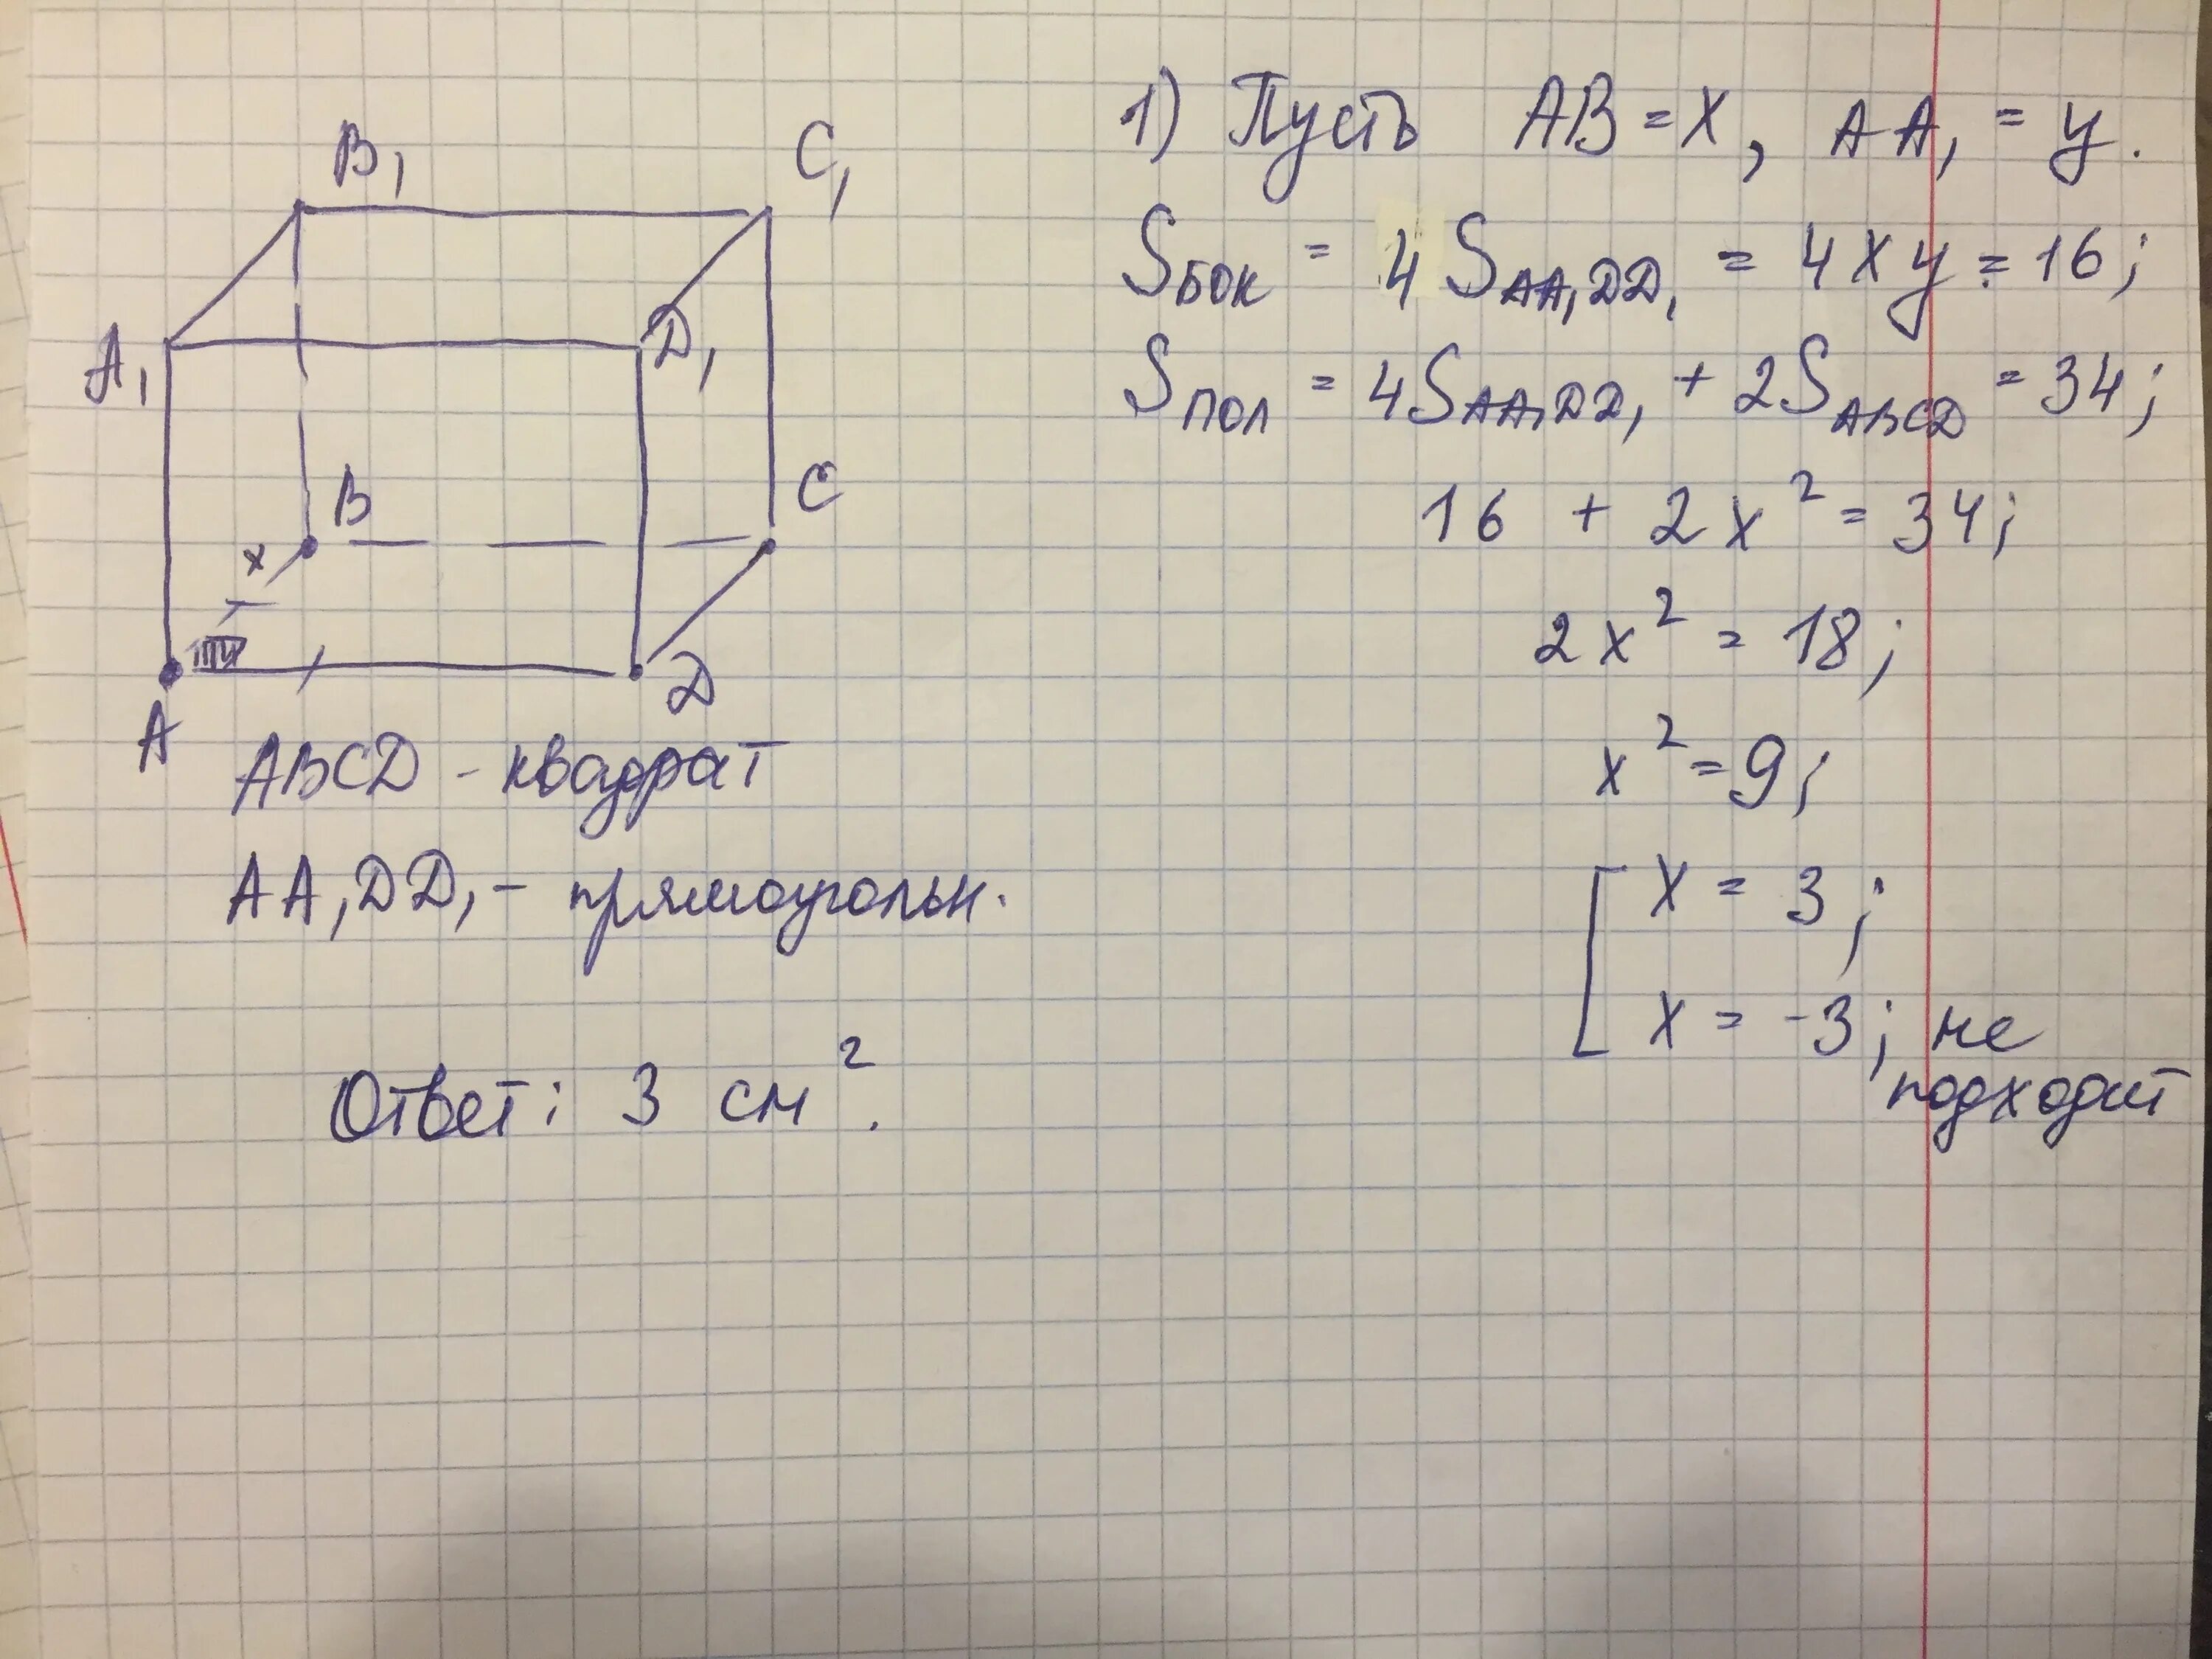 B₁
C₁
A₁
D₁
B
C
x
A
D
ABCD - квадрат
AA₁DD₁ - прямоугольн.
Ответ: 3 см².
1) Пусть AB = x, AA₁ = y.
Sбок = 4 S AA₁DD₁ = 4xy = 16;
Sпол = 4S AA₁DD₁ + 2S ABCD = 34;
16 + 2x² = 34;
2x² = 18;
x² = 9;
[ x = 3;
x = -3; не
подходит